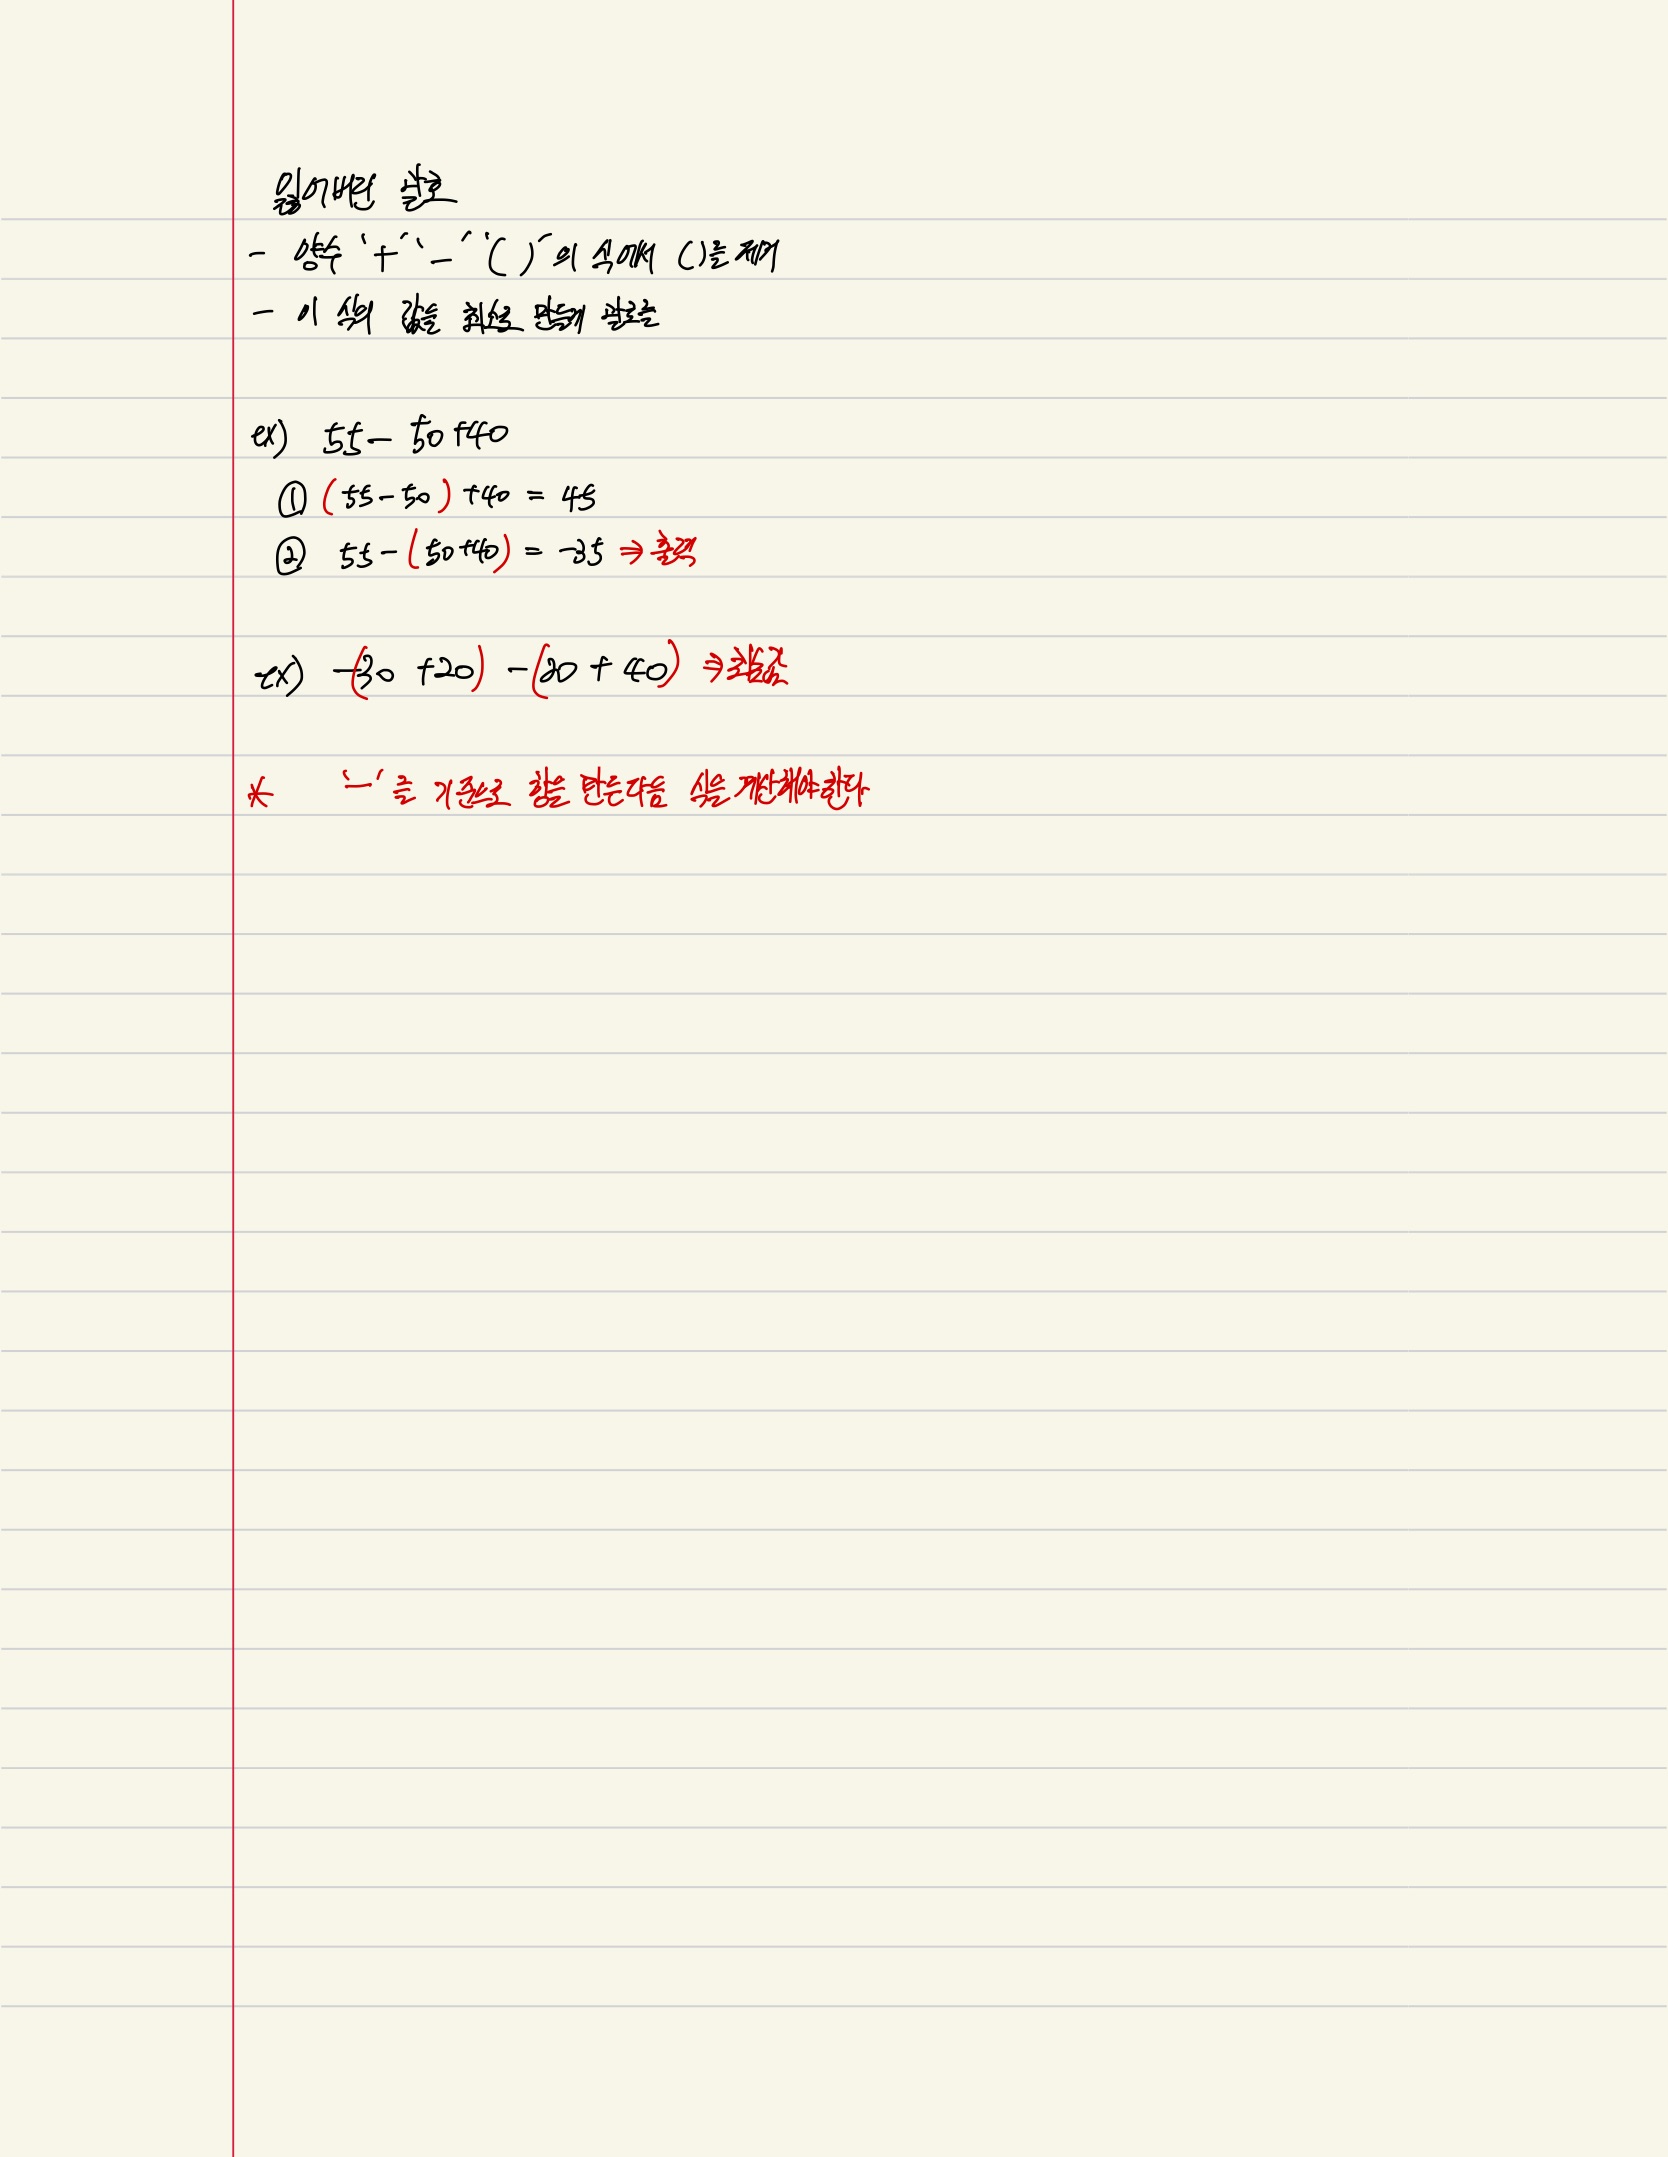 잃어버린 괄호
- 양수 '+' '-' '( )' 의 식에서 ()를 제거
- 이 식의 값을 최소로 만들게 괄호를
ex) 55 - 50 + 40
① (55 - 50) + 40 = 45
② 55 - (50 + 40) = -35 ⇒ 출력
ex) -(30 + 20) - (20 + 40) ⇒ 최솟값
* '-'를 기준으로 합을 만든다음 식을 계산해야한다